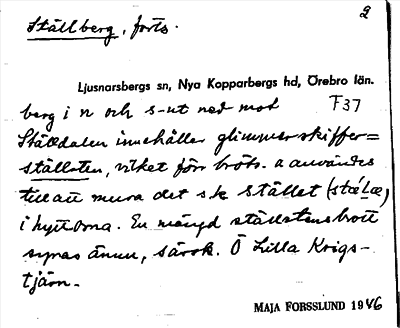 2
Ställberg, forts.
Ljusnarsbergs sn, Nya Kopparbergs hd, Örebro län.
berg i n och s-ut ned mot F37
Ställdalen innehåller glimmerskiffer=
ställsten, vilket förr bröts o användes
till att mura det s k stället
i hyttorna. En mängd ställstensbrott
synas ännu, särsk. Ö Lilla Krigs-
tjärn.
MAJA FORSSLUND 1946